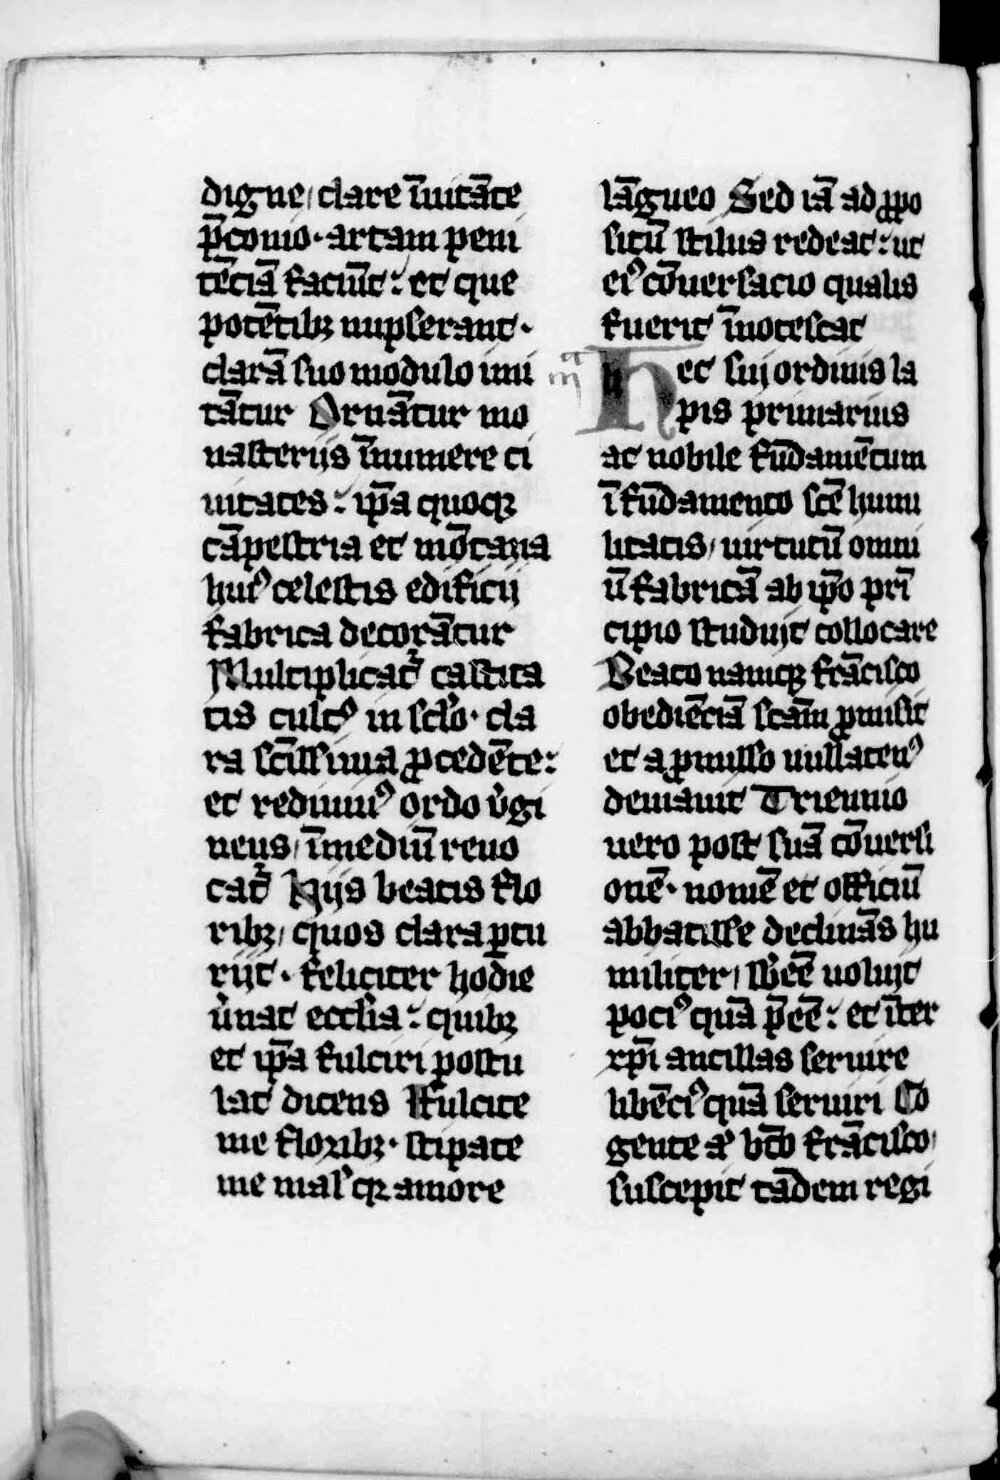 digne / clare īuitāte
p̄conio · artam peni
tēciā faciūt : et que
potētibꝫ nupserant ·
clarā suo modulo imi
tātur Ornātur mo
nasterijs īnumere ci
uitates : ip̄a quoqꝫ
cāpestria et mōtana
huiꝰ celestis edificij
fabrica decorātur
Multiplicat᷑ castita
tis cultꝰ in sclo̾ · cla
ra sc̄issima ꝓcedēte :
et rediuiuꝰ ordo v̾gi
neus / īmediū reuo
cat᷑ Hijs beatis flo
ribꝫ / quos clara ꝑtu
rijt · feliciter hodie
v̾nat eccl̾ia : quibꝫ
et ip̄a fulciri postu
lat dicens Fulcite
me floribꝫ · stipate
me mal̾ qꝫ amore
lāgueo Sed iā ad ꝓpo
sitū stilus redeat : ut
eiꝰ cōuersacio qualis
fuerit īnotescat
iijᵃ Hec sui ordinis la
pis primarius
ac nobile fūdamētum
ī fūdamento scē humi
litatis / uirtutū omni
ū fabricā ab ip̄o prī
cipio studuit collocare
Beato namqꝫ frācisco
obediēciā scām ꝓmisit
et a ꝓmisso nullatenꝰ
deuiauit Triennio
uero post suā cōuersi
onē · nomē et officiū
abbatisse declinās hu
militer / sb̾ēē uoluit
pociꝰ quā p̄ēē : et īter
xp̄i ancillas seruire
libēciꝰ quā seruiri Co
gente ꝫ bt̄o frācisco /
suscepit tādem regi